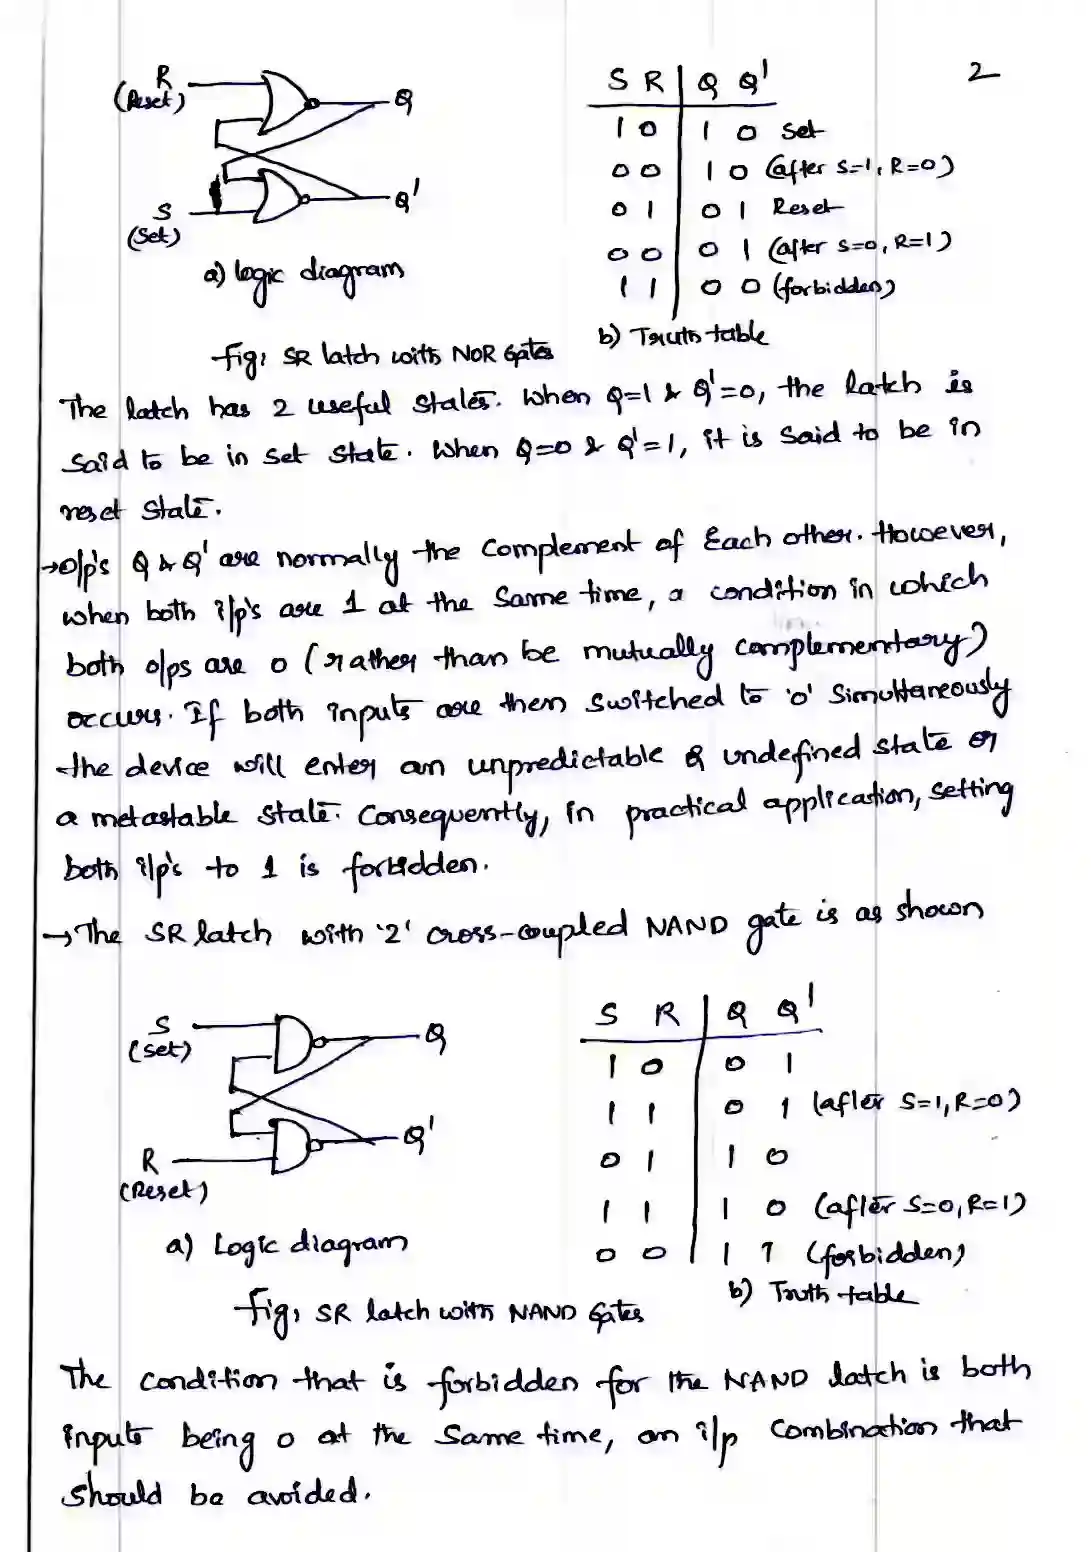 2
R
(Reset)
Q
S
(Set)
Q'
a) logic diagram
S R Q Q'
1 0 1 0 Set
0 0 1 0 (after S=1, R=0)
0 1 0 1 Reset
0 0 0 1 (after S=0, R=1)
1 1 0 0 (forbidden)
b) Truth table
fig: SR latch with NOR Gates
The latch has 2 useful states. When Q=1 & Q'=0, the latch is
said to be in set state. When Q=0 & Q'=1, it is said to be in
reset state.
→o/p's Q & Q' are normally the complement of Each other. However,
when both i/p's are 1 at the same time, a condition in which
both o/ps are 0 (rather than be mutually complementary)
occurs. If both inputs are then switched to '0' simultaneously
the device will enter an unpredictable & undefined state or
a metastable state. Consequently, in practical application, setting
both i/p's to 1 is forbidden.
→ The SR latch with '2' cross-coupled NAND gate is as shown
S
(Set)
Q
R
(Reset)
Q'
a) Logic diagram
S R Q Q'
1 0 0 1
1 1 0 1 (after S=1, R=0)
0 1 1 0
1 1 1 0 (after S=0, R=1)
0 0 1 1 (forbidden)
b) Truth table
fig: SR latch with NAND Gates
The condition that is forbidden for the NAND latch is both
inputs being 0 at the same time, an i/p combination that
should be avoided.